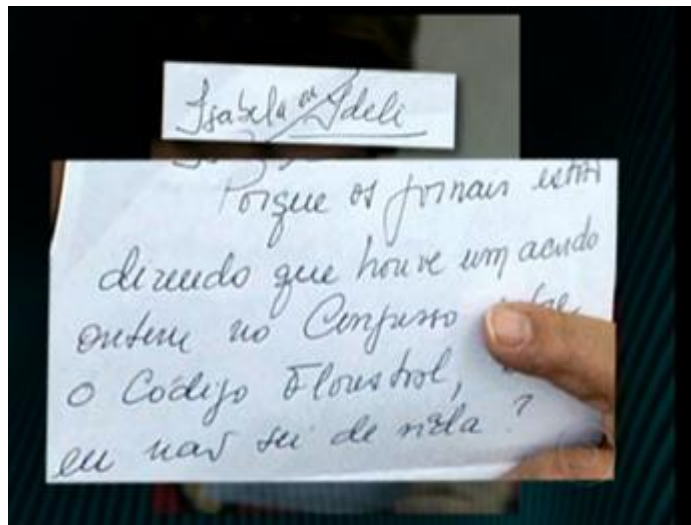 Isabela ou Ideli
Porque os jornais estão
dizendo que houve um acordo
ontem no Congresso
o Código Florestal,
eu não sei de nada?